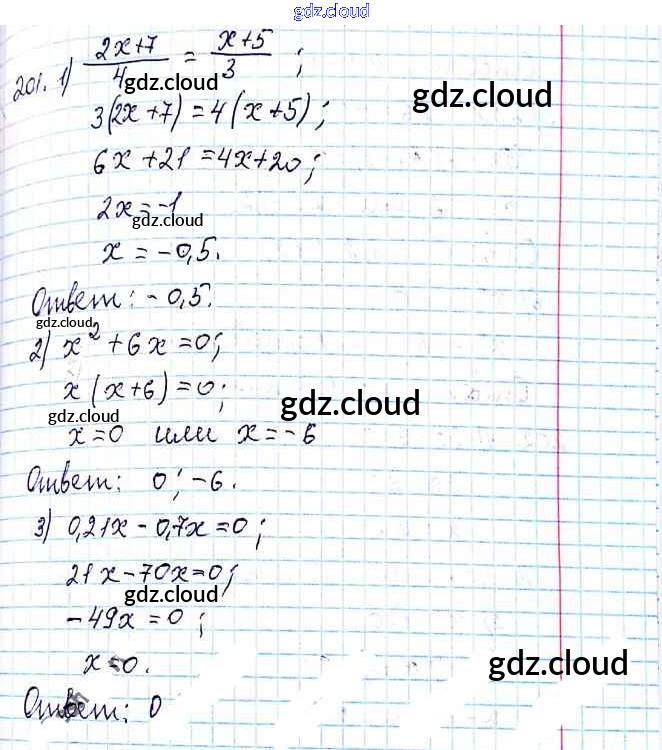 gdz.cloud
201. 1) (2x+7)/4 = (x+5)/3 ;
gdz.cloud
gdz.cloud
3(2x+7)=4(x+5);
6x+21=4x+20;
2x=-1
gdz.cloud
x=-0,5.
Ответ: -0,5.
gdz.cloud
2) x²+6x=0;
x(x+6)=0;
gdz.cloud
gdz.cloud
x=0 или x=-6
Ответ: 0; -6.
3) 0,21x-0,7x=0;
21x-70x=0;
gdz.cloud
-49x=0;
x=0.
gdz.cloud
Ответ: 0